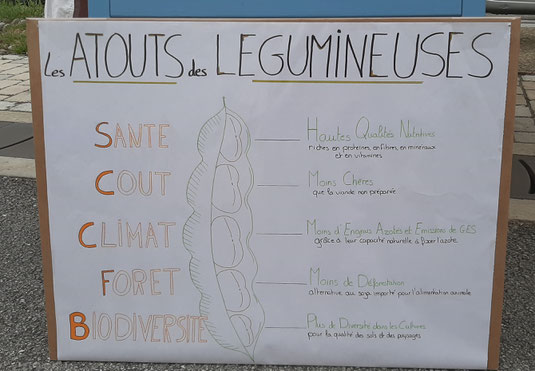 Les ATOUTS des LEGUMINEUSES
SANTE
Hautes Qualités Nutritives
riches en protéines, en fibres, en minéraux
et en vitamines
COUT
Moins Chères
que la viande non préparée
CLIMAT
Moins d'Engrais Azotés et Emissions de GES
grâce à leur capacité naturelle à fixer l'azote
FORET
Moins de Déforestation
alternative au soja importé pour l'alimentation animale
BIODIVERSITE
Plus de Diversité dans les Cultures
pour la qualité des sols et des paysages